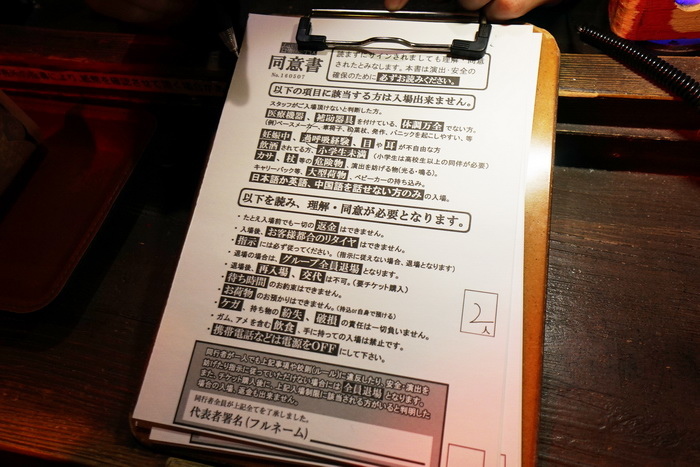 同意書
No.180507
読まずにサインされましても理解・同意
されたとみなします。本書は演出・安全の
確保のために必ずお読みください。
以下の項目に該当する方は入場出来ません。
スタッフがご入場頂けないと判断した方。
医療機器、補助器具を付けている、体調万全でない方。
(例)ペースメーカー、車椅子、松葉杖、発作、パニックを起こしやすい、等
妊娠中、過呼吸経験、目や耳が不自由な方
飲酒されてる方、小学生未満(小学生は高校生以上の同伴が必要)
カサ、杖等の危険物、演出を妨げる物(光る・鳴る)。
キャリーバック等、大型荷物、ベビーカーの持ち込み。
日本語か英語、中国語を話せない方のみの入場。
以下を読み、理解・同意が必要となります。
・たとえ入場前でも一切の返金はできません。
・入場後、お客様都合のリタイヤはできません。
・指示には必ず従ってください。(指示に従えない場合、退場となります)
・退場の場合は、グループ全員退場となります。
・退場後、再入場、交代は不可。(要チケット購入)
・待ち時間のお約束はできません。
・お荷物のお預かりはできません。(持込or自身で預ける)
・ケガ、持ち物の紛失、破損の責任は一切負いません。
・ガム、アメを含む飲食、手に持っての入場は禁止です。
・携帯電話などは電源をOFFにして下さい。
2人
同行者が一人でも上記事項や規則(ルール)に違反したり、安全・演出を
妨げたり指示に従っていただけない場合には全員退場となります。
またチケット購入後に、上記入場制限に該当される方がいると判明した
場合の入場、返金も出来ません。
同行者全員が上記全てを了承しました。
代表者署名(フルネーム)